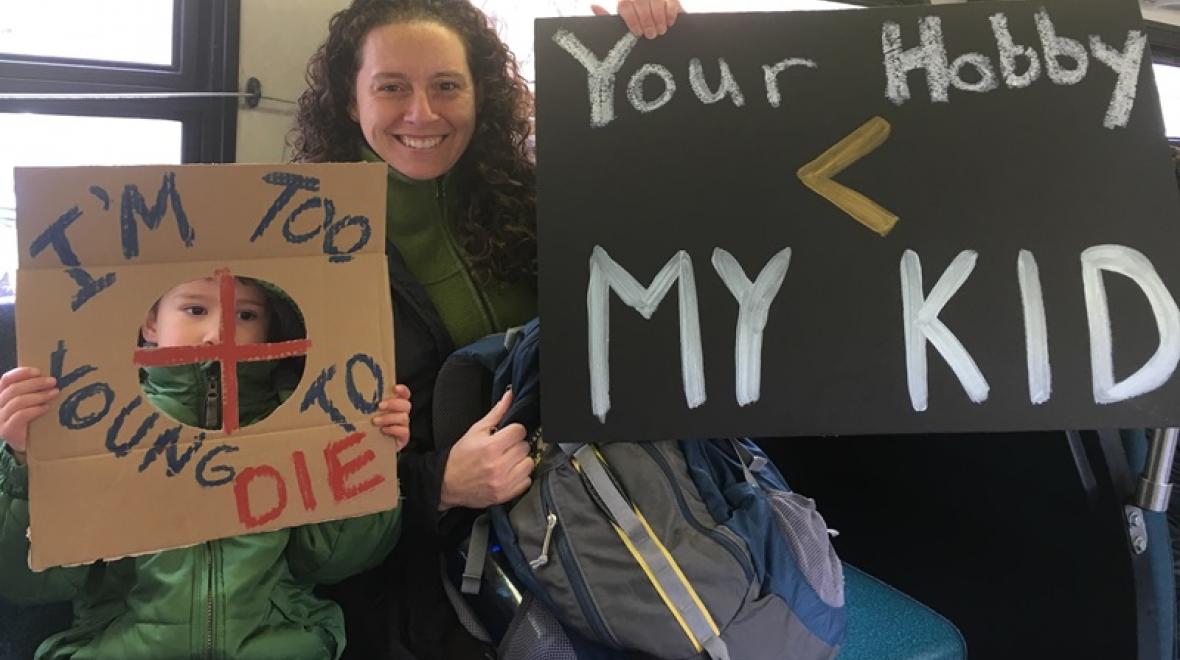 I'M TOO
YOUNG TO
DIE
Your Hobby
<
MY KID